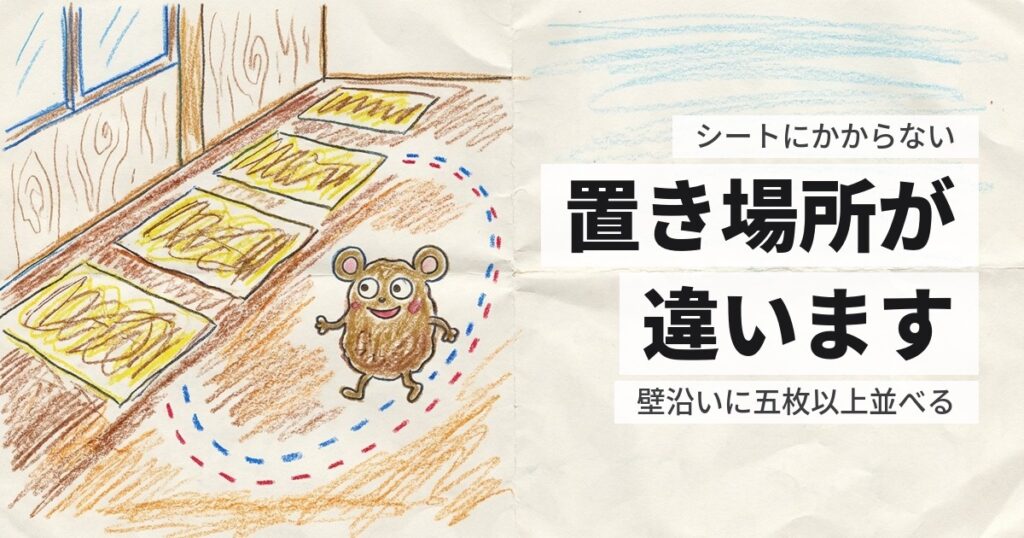 シートにかからない
置き場所が
違います
壁沿いに五枚以上並べる